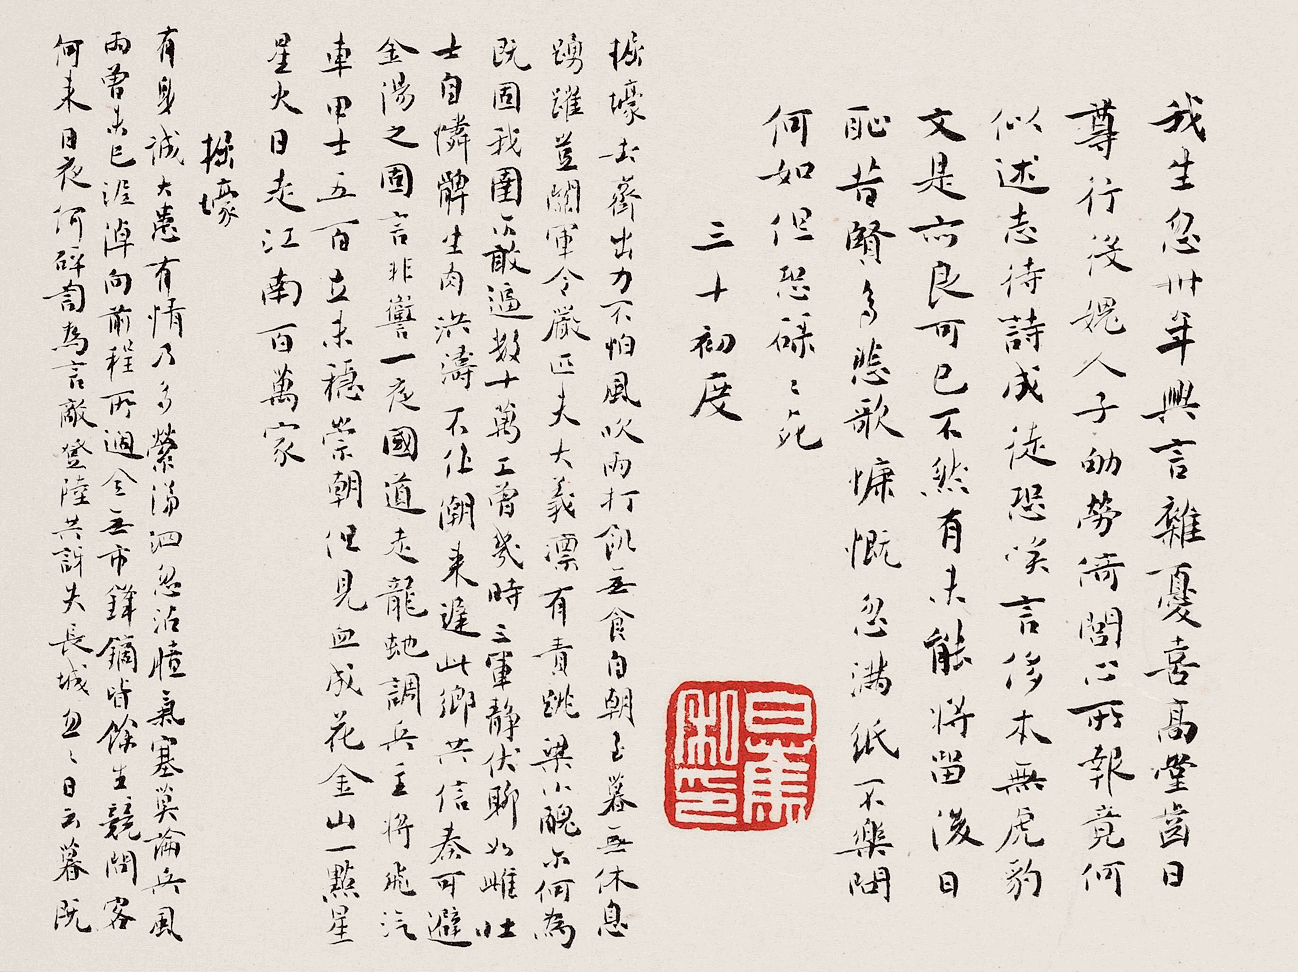 我生忽卅年興言雜憂喜高堂齒日
尊行役媿人子劬勞倚閭心所報竟何
似述志待詩成徒恐嗟言侈本無虎豹
文是亦良可已不然有未能將留後日
恥昔賢多悲歌慷慨忽滿紙不樂陋
何如但恐碌〻死
三十初度
掘壕去齊出力不怕風吹雨打飢無食自朝至暮無休息
踴躍並關軍令嚴匹夫大義凜有責跳梁小醜尔何為
既固我圉尔敢逼數十萬工曾幾時三軍靜伏聊如雌壯
士自憐髀生肉洪濤不作潮來遲此鄉共信秦可避
金湯之固言非讆一夜國道走龍虵調兵主將飛汽
車甲士五百立未穩崇朝但見血成花金山一點星
星火日走江南百萬家
掘壕
有身誠大患有情乃多縈涕泗忽沾臆氣塞莫論兵風
雨曾未已泥淖向前程所過全無市鋒鏑皆餘生競問客
何来日夜何砰訇為言敵登陸共訝失長城忽〻日云暮既